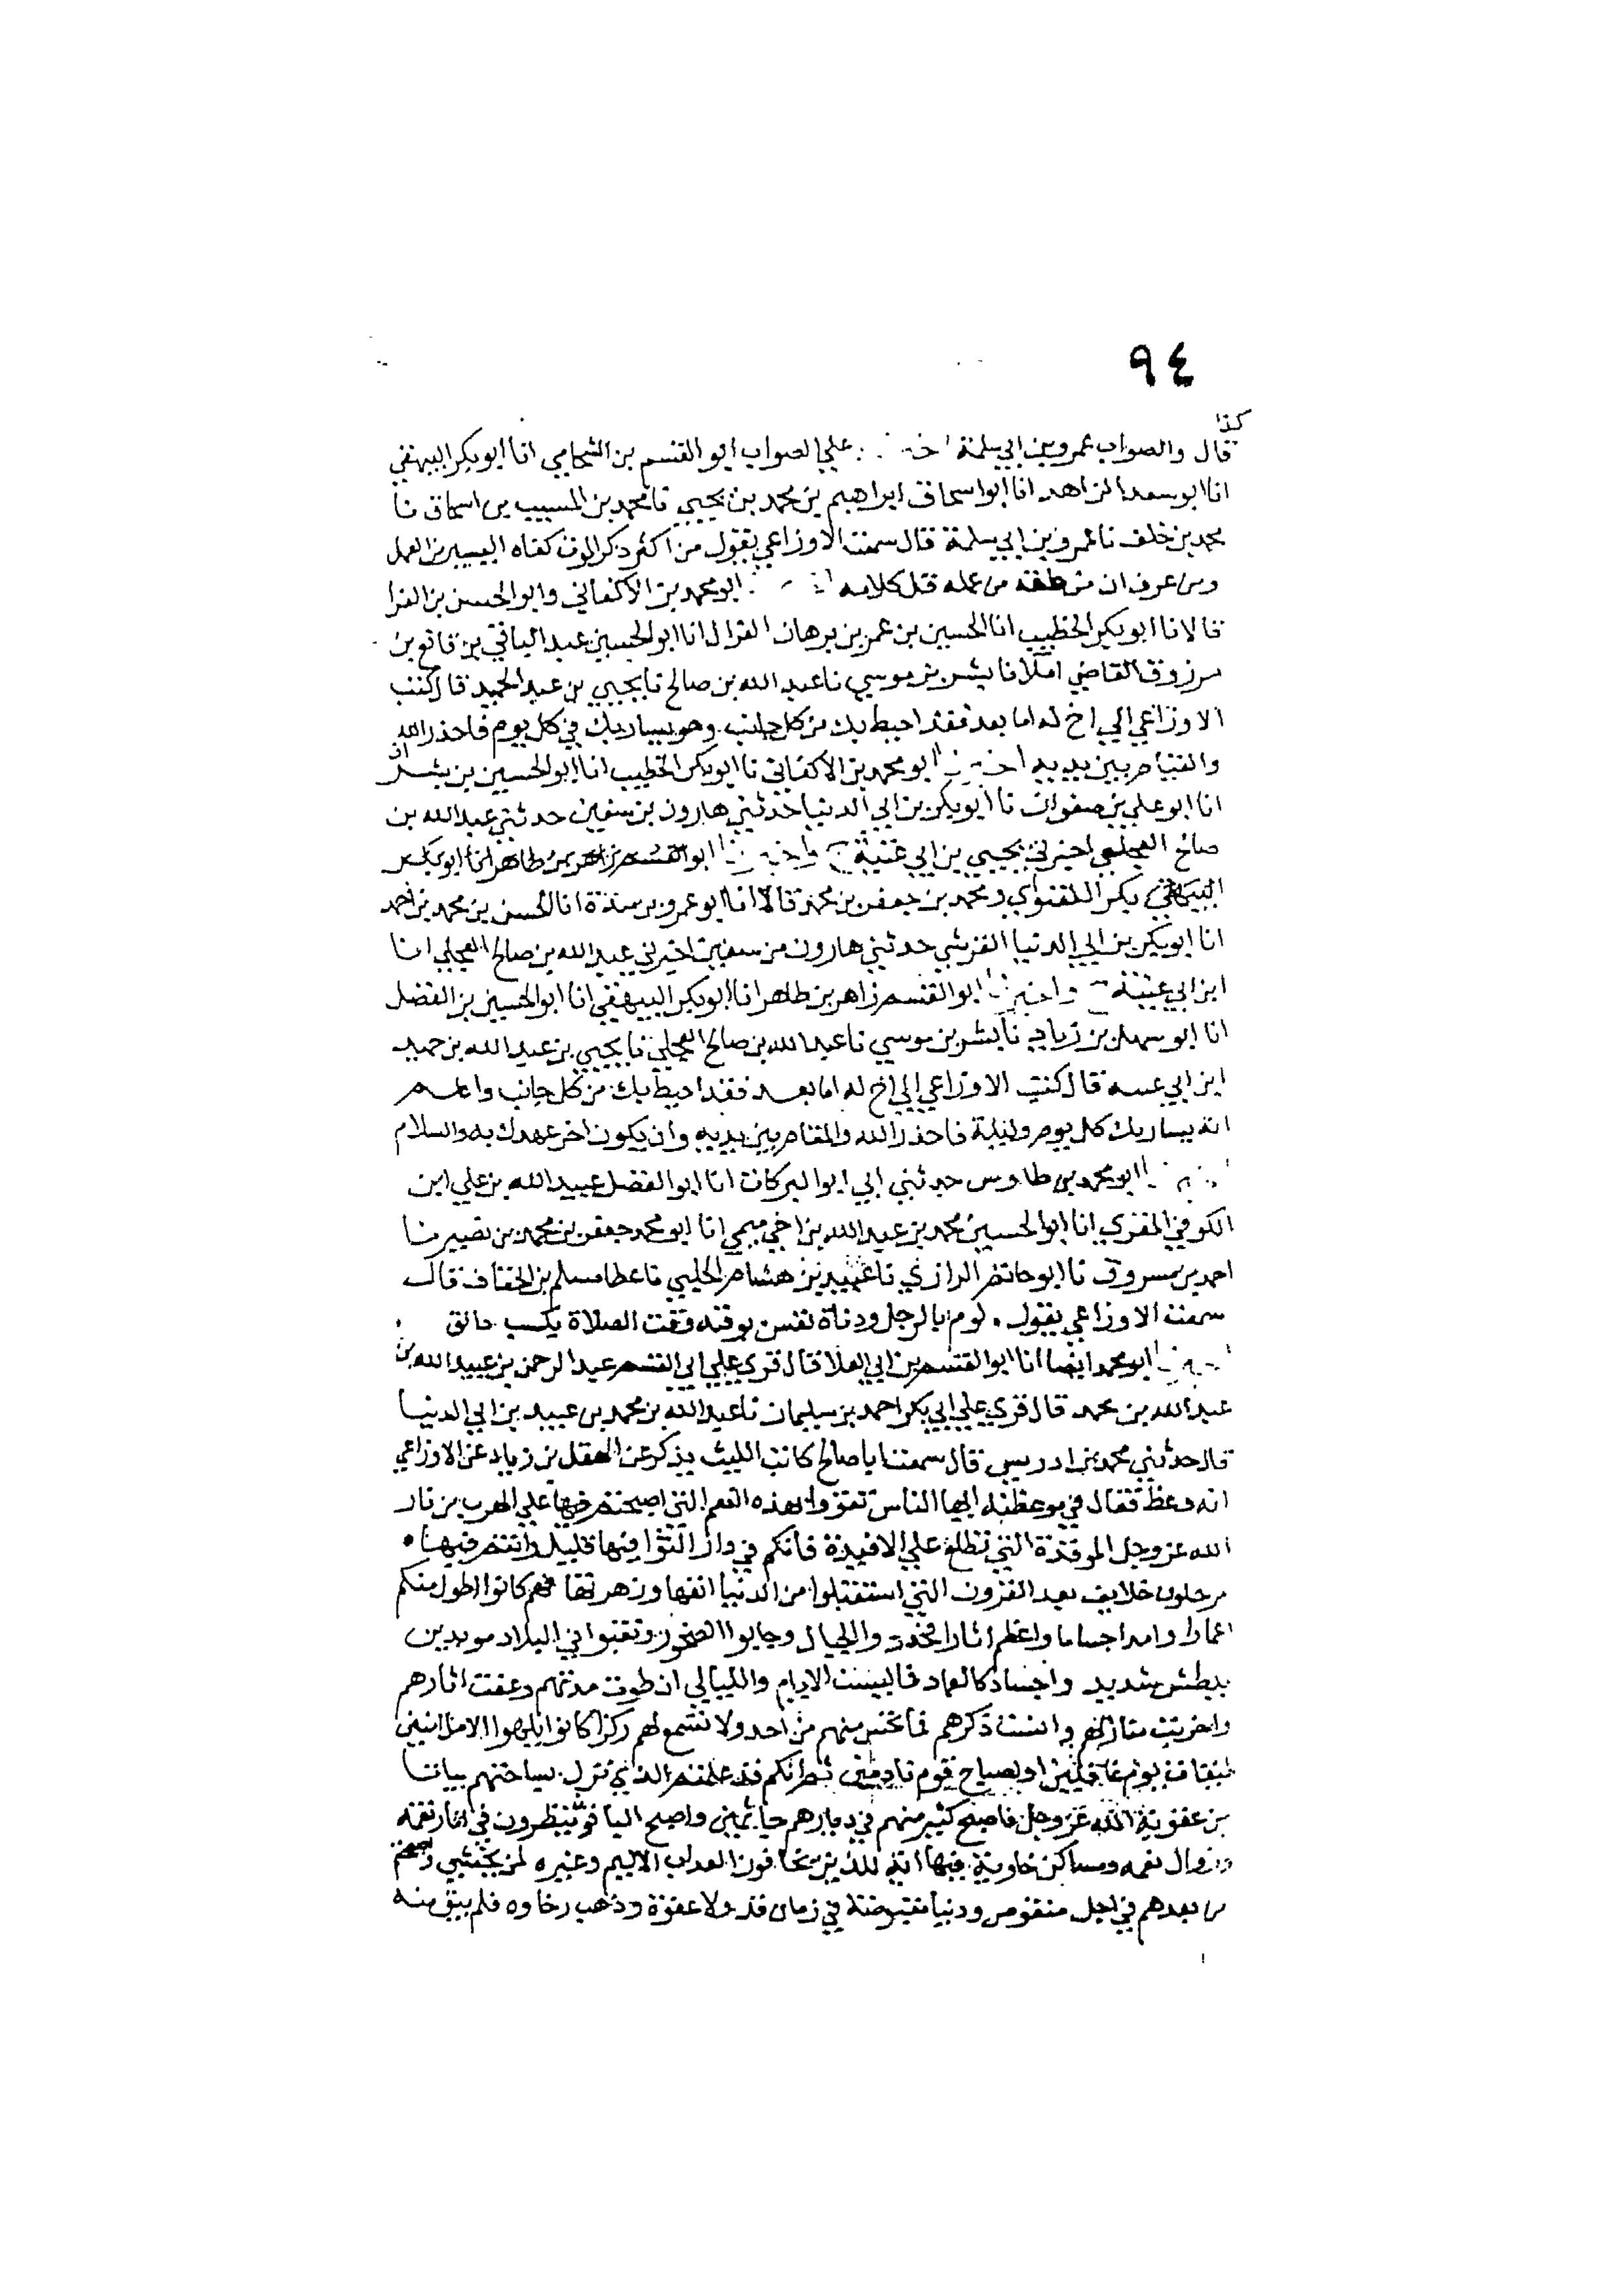 ٩٤
كذا
قال والصواب عمرو بن ابي سلمة علي الصواب ابو القسم بن الشحامي انا ابو بكر البيهقي
انا ابو سعد الزاهد انا ابو اسحاق ابراهيم بن محمد بن يحيي نا محمد بن المسيب بن اسحاق نا
محمد بن خلف نا عمرو بن ابي سلمة قال سمعت الاوزاعي يقول من اكثر ذكر الموت كفاه اليسير من العمل
ومن عرف ان منطقه من عمله قل كلامه ابو محمد بن الاكفاني وابو الحسن بن الفرا
قالا نا ابو بكر الخطيب انا الحسين بن عمر بن برهان الغزال انا ابو الحسين عبد الباقي بن قانع بن
مرزوق القاضي املا نا بشر بن موسي نا عبد الله بن صالح نا يحيي بن عبد الحميد قال كتب
الاوزاعي الي اخ له اما بعد فقد احيط بك من كل جانب وهو يسار بك في كل يوم فاحذر الله
والقيام بين يديه ابو محمد بن الاكفاني نا ابو بكر الخطيب انا ابو الحسين بن بشران
انا ابو علي بن صفوان نا ابو بكر بن ابي الدنيا حدثني هارون بن سفين حدثني عبد الله بن
صالح العجلي اخبرني يحيي بن ابي غنية واخبرنا ابو القسم زاهر بن طاهر انا ابو بكر
البيهقي بكر اللفتواي ومحمد بن جعفر بن محمد قالا انا ابو عمرو بن مندة انا الحسن بن محمد بن احمد
انا ابو بكر بن ابي الدنيا القرشي حدثني هارون بن سفين اخبرني عبد الله بن صالح العجلي انا
ابن ابي غنية واخبرنا ابو القسم زاهر بن طاهر انا ابو بكر البيهقي انا ابو الحسين بن الفضل
انا ابو سهل بن زياد نا بشر بن موسي نا عبد الله بن صالح العجلي نا يحيي بن عبد الله بن حميد
ابن ابي عسه قال كتب الاوزاعي الي اخ له اما بعد فقد احيط بك من كل جانب واعلم
انه يسار بك كل يوم وليلة فاحذر الله والمقام بين يديه وان يكون اخر عهدك به والسلام
ابو محمد بن طاوس حدثني ابي ابو البركات انا ابو الفضل عبيد الله بن علي ابن
الكوفي المقري انا ابو الحسين محمد بن عبد الله بن اخي ميمي انا ابو محمد جعفر بن محمد بن نصير نا
احمد بن مسروق نا ابو حاتم الرازي نا عبيد بن هشام الحلبي نا عطا مسلم بن الخفاف قال
سمعت الاوزاعي يقول لوم بالرجل ودناة نفس يوقته وقت الصلاة بكسب دانق
ابو محمد ايضا انا ابو القسم بن ابي العلا قال قري علي ابي القسم عبد الرحمن بن عبيد الله بن
عبد الله بن محمد قال قري علي ابي بكر احمد بن سليمان نا عبد الله بن محمد بن عبيد بن ابي الدنيا
قال حدثني محمد بن ادريس قال سمعت ابا صالح كاتب الليث يذكر عن الهقل بن زياد عن الاوزاعي
انه وعظ فقال في موعظته ايها الناس تقووا بهذه النعم التي اصبحتم فيها علي الهرب من نار
الله عز وجل الموقدة التي تطلع علي الافيدة فانكم في دار الثوا فيها قليل وانتم فيها
مرحلون خلايف بعد القرون التي استقبلوا من الدنيا انفها وزهرتها فهم كانوا اطول منكم
اعمارا وامد اجساما واعظم اثارا فخددت والجبال وجابوا الصخور ونقبوا في البلاد مويدين
ببطش شديد واجساد كالعماد فما لبثت الايام والليالي ان طوت مدتهم وعفت اثارهم
واخربت منازلهم وانست ذكرهم فما تحس منهم من احد ولا تسمع لهم ركزا كانوا بلهوا الامل امنين
لبيات يوم غافلين او لصباح قوم نادمين ثم انكم قد علمتم الذي نزل بساحتهم بياتا
من عقوبة الله عز وجل فاصبح كثير منهم في ديارهم جاثمين واصبح الباقون ينظرون في اثار نقمه
وزوال نعمه ومساكن خاوية فيها اية للذين يخافون العذاب الاليم وعبره لمن يخشي واصبحتم
من بعدهم في اجل منقوص ودنيا مقبوضة في زمان قد ولا عفوة وذهب رخاوه فلم يبق منه